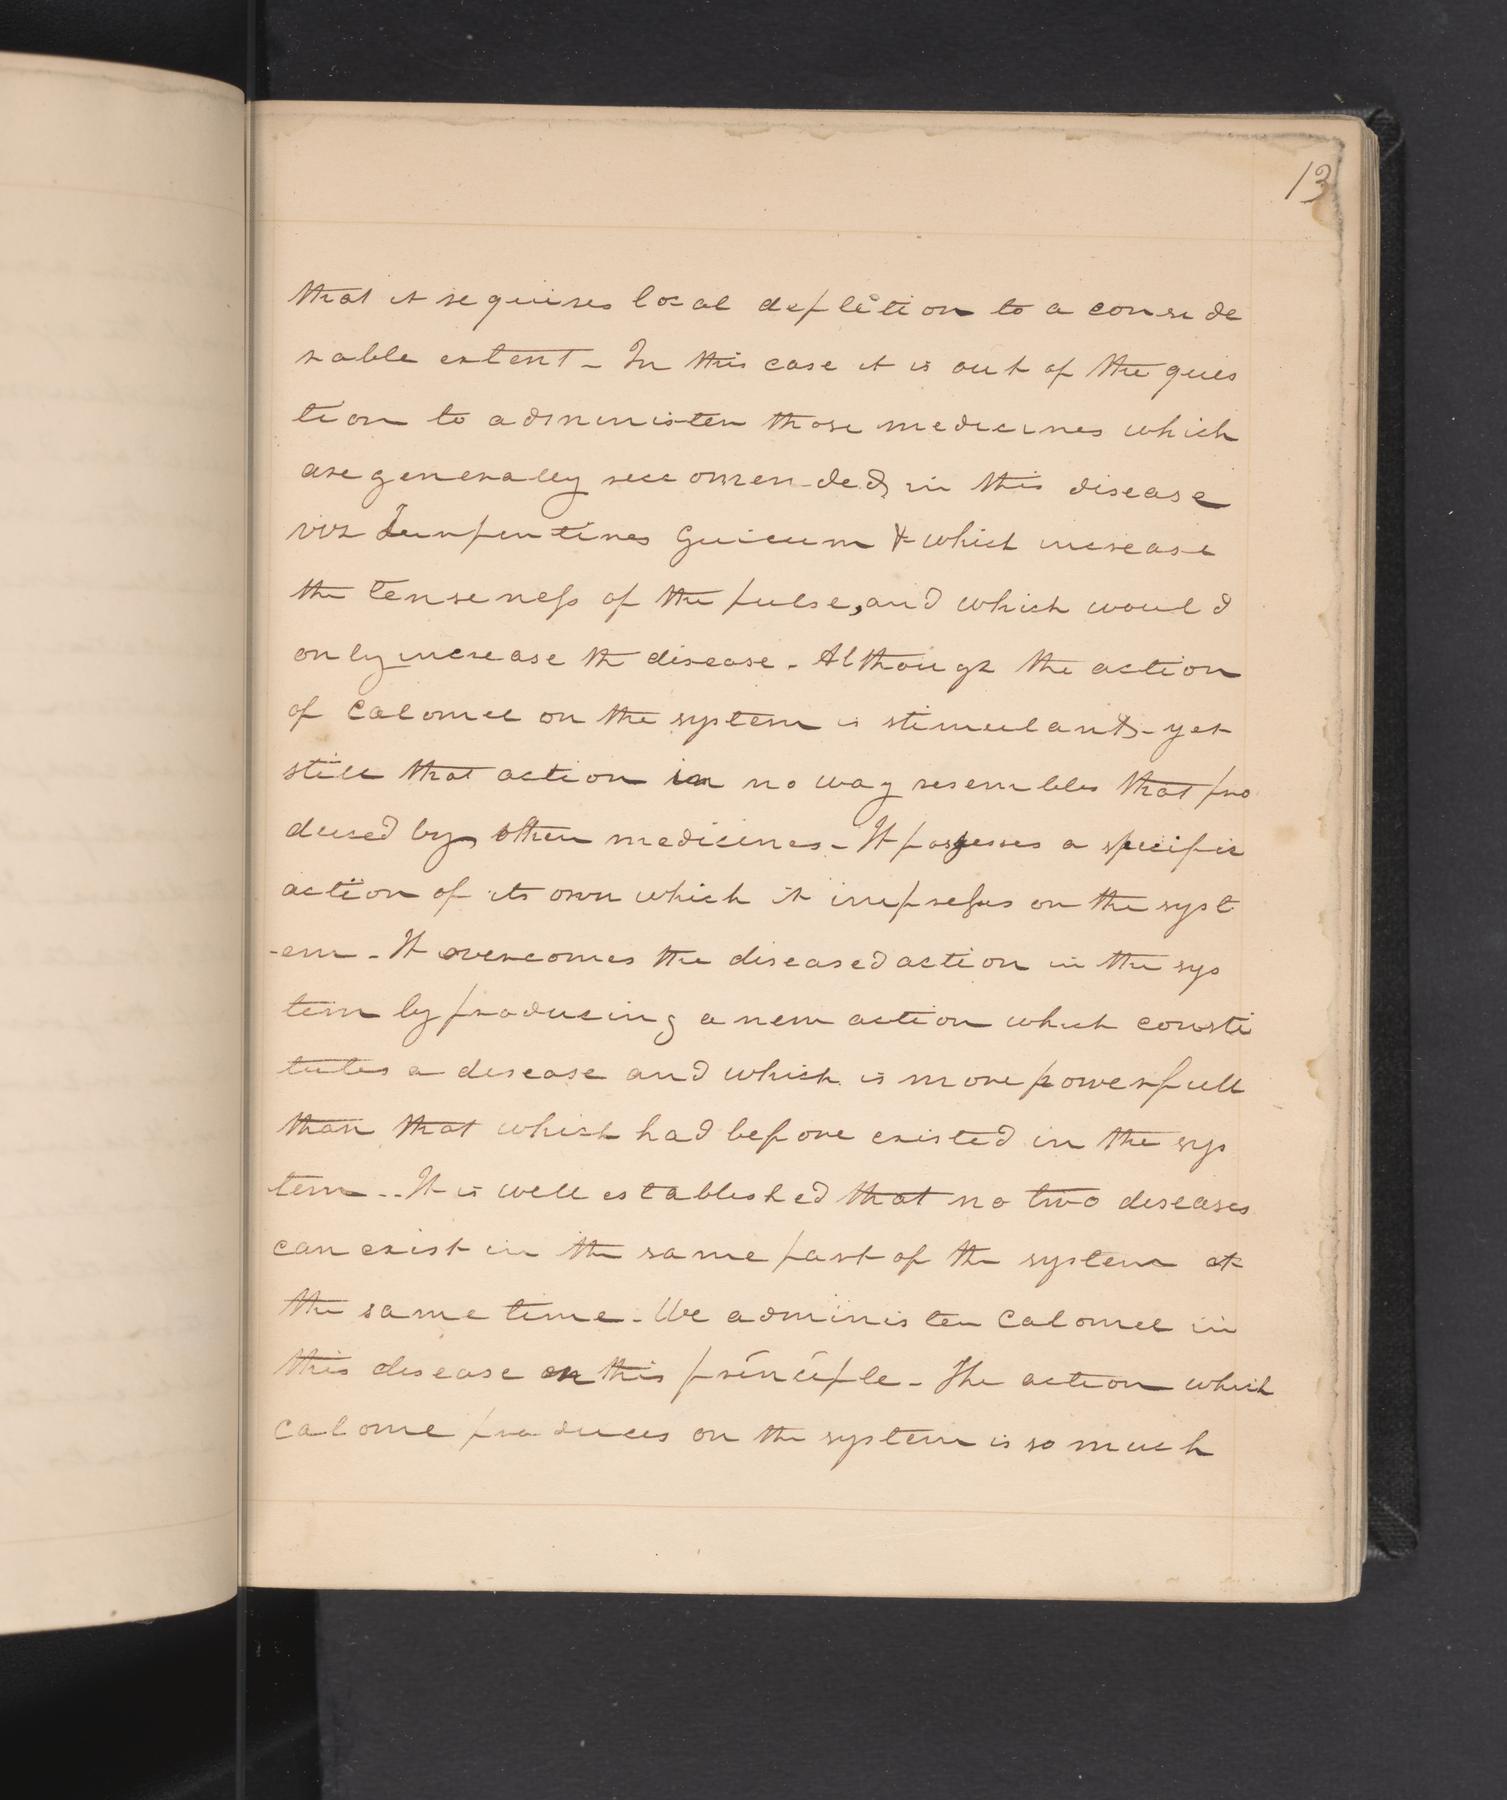 13
that it requires local depletion to a conside
rable extent - In this case it is out of the ques
tion to administer those medicines which
are generally reccomended in this disease
viz Turpentines Guicum & which increase
the tenseness of the pulse, and which would
only increase the disease - Although the action
of Calomel on the system is stimulant - yet
still that action in no way resembles that pro
duced by other medicines - It possesses a specific
action of its own which it impresses on the syst
-em - It overcomes the diseased action in the sys
tem by producing a new action which consti
tutes a disease and which is more powerfull
than that which had before existed in the sys
tem - It is well established that no two diseases
can exist in the same part of the system at
the same time - We administer Calomel in
this disease on this principle - The action which
calome produces on the system is so much